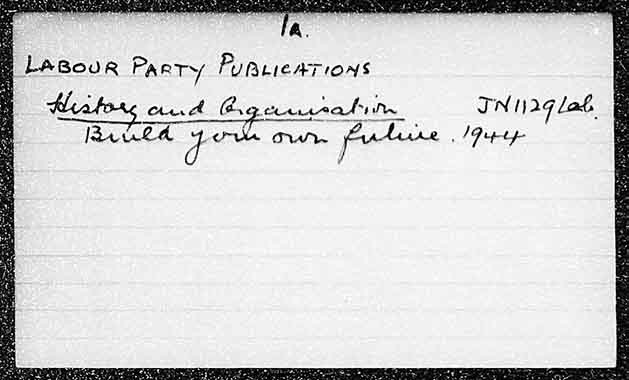 1A.
LABOUR PARTY PUBLICATIONS
History and Organisation JN1129Lab.
Build your own future. 1944